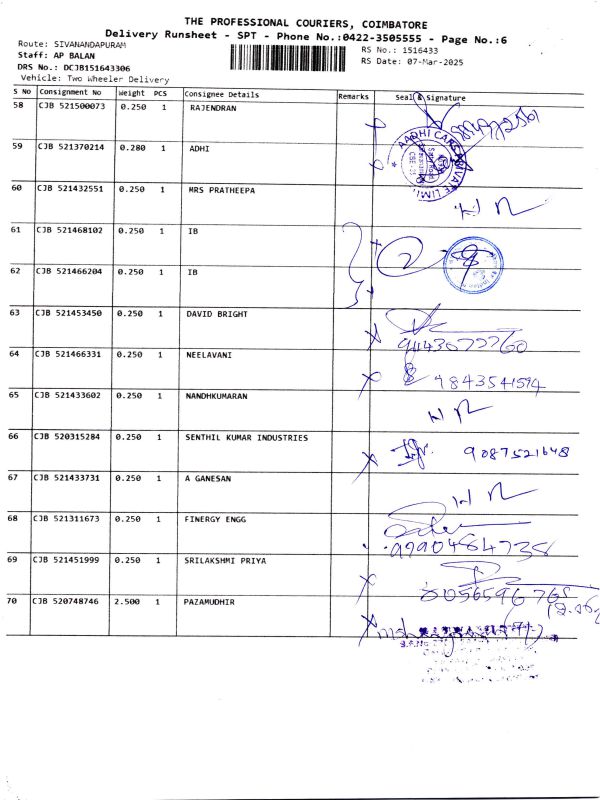 THE PROFESSIONAL COURIERS, COIMBATORE
Delivery Runsheet - SPT - Phone No.:0422-3505555 - Page No.:6
Route: SIVANANDAPURAM
Staff: AP BALAN
DRS No.: DCJB151643306
Vehicle: Two Wheeler Delivery
RS No.: 1516433
RS Date: 07-Mar-2025
S No Consignment No Weight PCS Consignee Details Remarks Seal & Signature
58 CJB 521500073 0.250 1 RAJENDRAN
59 CJB 521370214 0.280 1 ADHI
AADHI CARS PRIVATE LIMI
60 CJB 521432551 0.250 1 MRS PRATHEEPA
61 CJB 521468102 0.250 1 IB
2
62 CJB 521466204 0.250 1 IB
63 CJB 521453450 0.250 1 DAVID BRIGHT
9443077760
64 CJB 521466331 0.250 1 NEELAVANI
9843541594
65 CJB 521433602 0.250 1 NANDHKUMARAN
66 CJB 520315284 0.250 1 SENTHIL KUMAR INDUSTRIES 9087521648
67 CJB 521433731 0.250 1 A GANESAN
68 CJB 521311673 0.250 1 FINERGY ENGG
69 CJB 521451999 0.250 1 SRILAKSHMI PRIYA
8056596765
70 CJB 520748746 2.500 1 PAZAMUDHIR